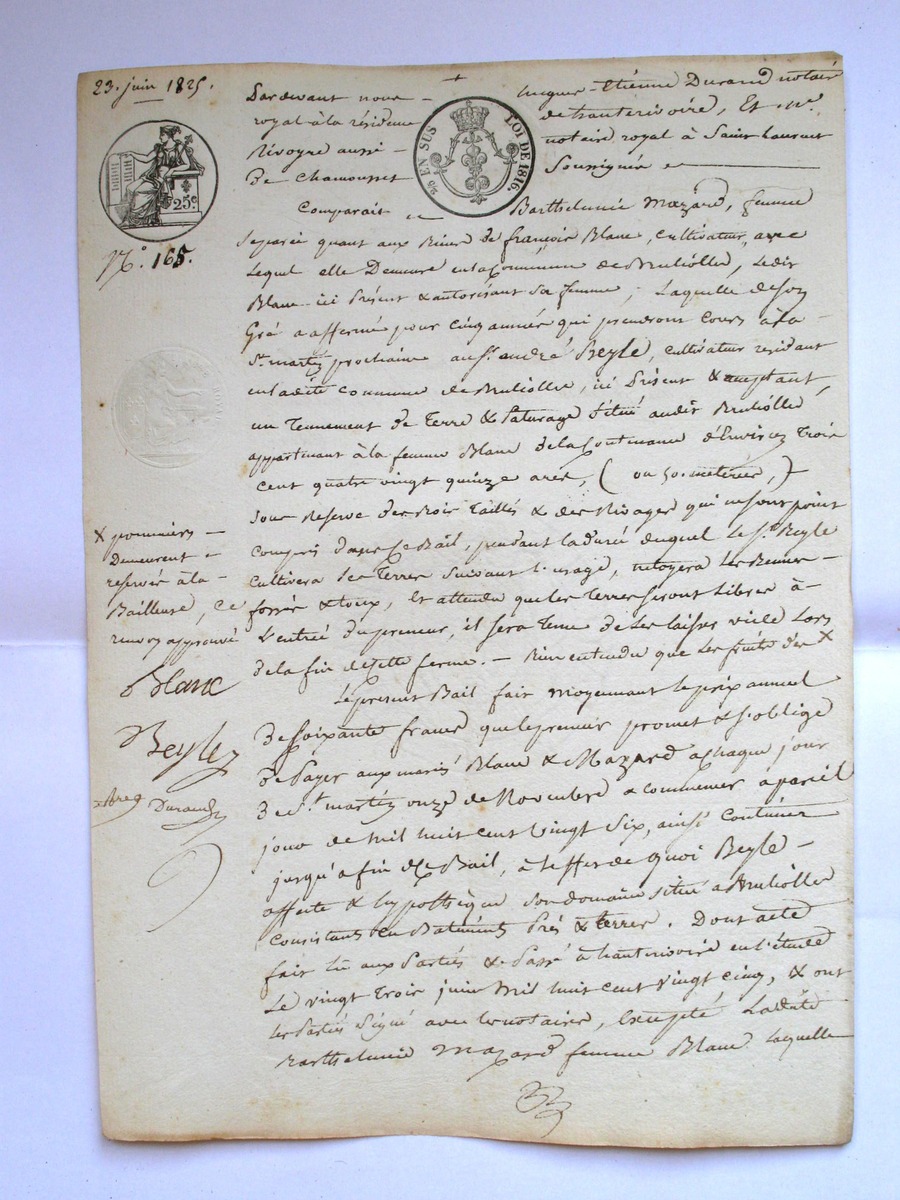 23. juin 1825.
Pardevant nous hugues-Etienne Durand notaire
royal à la résidence de hauterivoire, Et me.
Rivoyre aussi notaire royal à Saint Laurent
De Chamousset Soussignés
20 EN SUS LOI DE 1816.
25c
No. 165.
Comparait Barthelemie Mazard, femme
Separée quant aux Biens de françois Blanc, cultivateur, avec
Lequel elle Demeure en la Commune de Brullioles, Ledit
Blanc ici Présent & autorisant Sa femme, Laquelle de Son
Gré a affermé pour cinq années qui prendront cours à la
St. martin prochaine au Sr. andré Beyle, cultivateur residant
en ladite commune de Brulliolles, ici Présent & acceptant,
un Tennement de Terre & Paturage Situé audit Brulliolles
appartenant à la femme Blanc De la Contenance d'Environ Trois
cent quatre vingt quinze ares, (ou 50. meterées,)
Sous Réserve des Bois Taillés & des Rivages qui ne sont point
Compris dans ce Bail, pendant la durée duquel le Sr. Beyle
Cultivera Les Terres Suivant l'usage, netoyera Les
fossés & Et attendu que les Terres Seront Libres à
L'entrée du preneur, il Sera Tenu de Les laisser vuide Lors
de la fin de cette ferme. — Bien entendu que Les fruits des X
X pommiers
Demeurent
reservés à la
Bailleuse, ce
renvoi approuvé
Blanc
Beyle
Durand
Le present Bail fait moyennant le prix annuel
De Soixante francs que le preneur promet & s'oblige
De Payer aux mariés Blanc & Mazard a chaque jour
De St. martin onze de Novembre a commencer a pareil
jour de mil huit cent vingt Six, ainsi continuer
jusqu'a fin de Bail, à l'effet de quoi Beyle
affecte & hypothèque Son domaine Situé a Brulliolles
Consistant en Batiments Prés & terres. Dont acte
fait lu aux Parties & Passé à hauterivoire en l'étude
Le vingt Trois juin mil huit cent vingt cinq, & ont
Les Parties Signé avec le notaire, Excepté Ladite
Barthelemie Mazard femme Blanc Laquelle